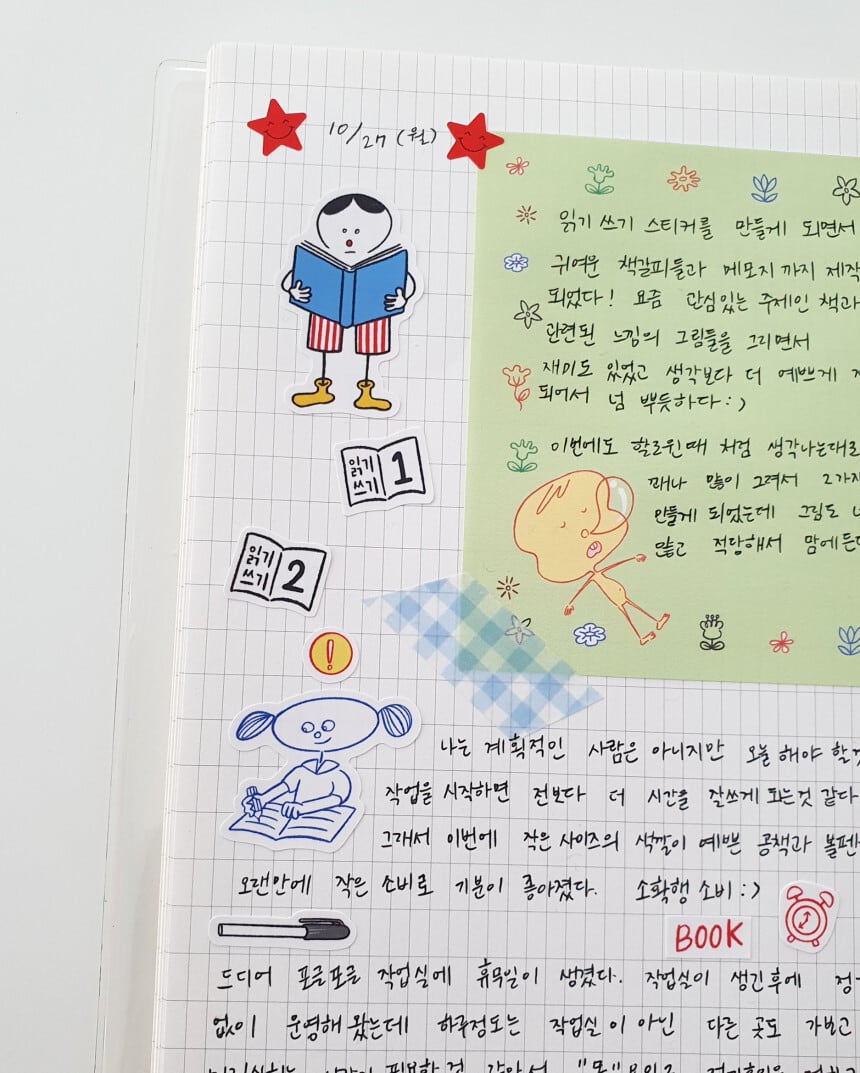 10/27 (월)
읽기 쓰기 스티커를 만들게 되면서
귀여운 책갈피들과 메모지 까지 제작
되었다! 요즘 관심있는 주제인 책과
관련된 느낌의 그림들을 그리면서
재미도 있었고 생각보다 더 예쁘게
되어서 넘 뿌듯하다 :)
이번에도 할로윈때 처럼 생각나는대로
꽤나 많이 그려서 2가지
만들게 되었는데 그림도
많고 적당해서 맘에든다
읽기
쓰기 1
읽기
쓰기 2
!
나는 계획적인 사람은 아니지만 오늘 해야 할것
작업을 시작하면 전보다 더 시간을 잘쓰게 되는것 같다
그래서 이번에 작은 사이즈의 색깔이 예쁜 공책과 볼펜
오랜만에 작은 소비로 기분이 좋아졌다. 소확행 소비 :)
BOOK
드디어 포클포클 작업실에 휴무일이 생겼다. 작업실이 생긴후에
없이 운영해 왔는데 하루정도는 작업실 이 아닌 다른 곳도 가보고